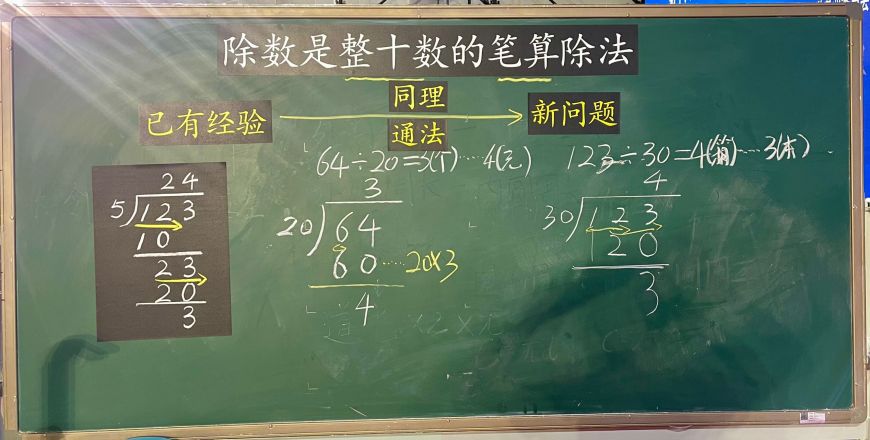 除数是整十数的笔算除法
已有经验
同理
通法
新问题
64÷20=3(个)……4(元)
123÷30=4(箱)……3(本)
24
5 123
10
23
20
3
3
20 64
60……20×3
4
4
30 123
120
3